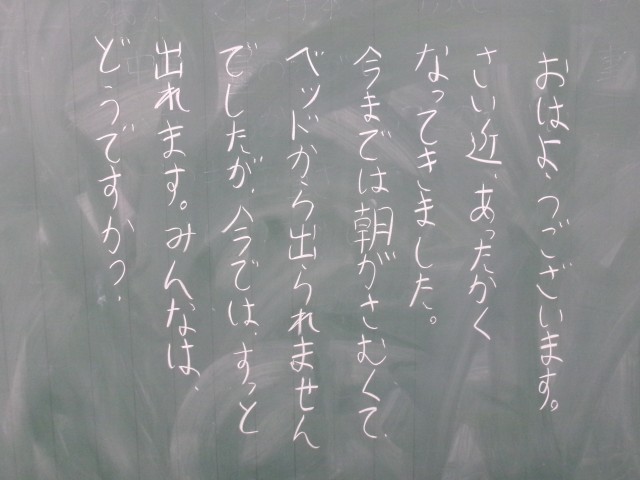 おはよ、うございます。
さい近、あったかく
なってきました。
今までは朝がさむくて、
ベッドから出られません
でしたが、今では、すっと
出れます。みんなは、
どうですか?